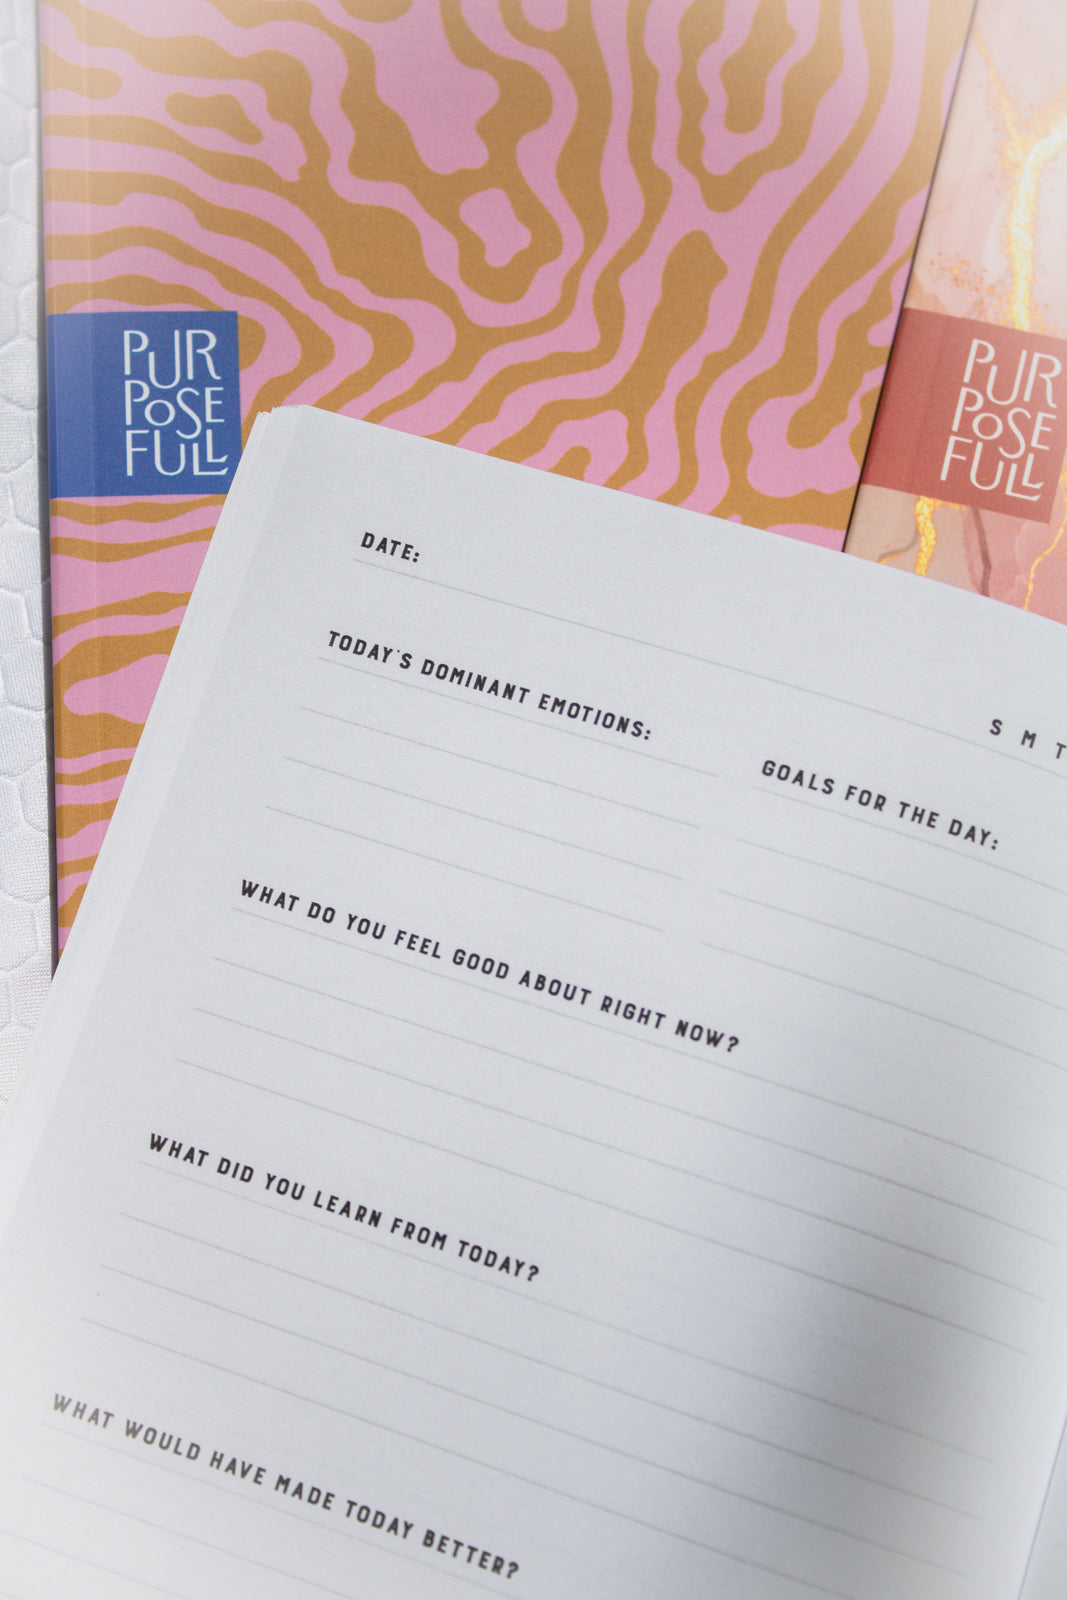 PUR
POSE
FULL
PUR
POSE
FULL
DATE:
S M T
TODAY'S DOMINANT EMOTIONS:
GOALS FOR THE DAY:
WHAT DO YOU FEEL GOOD ABOUT RIGHT NOW?
WHAT DID YOU LEARN FROM TODAY?
WHAT WOULD HAVE MADE TODAY BETTER?